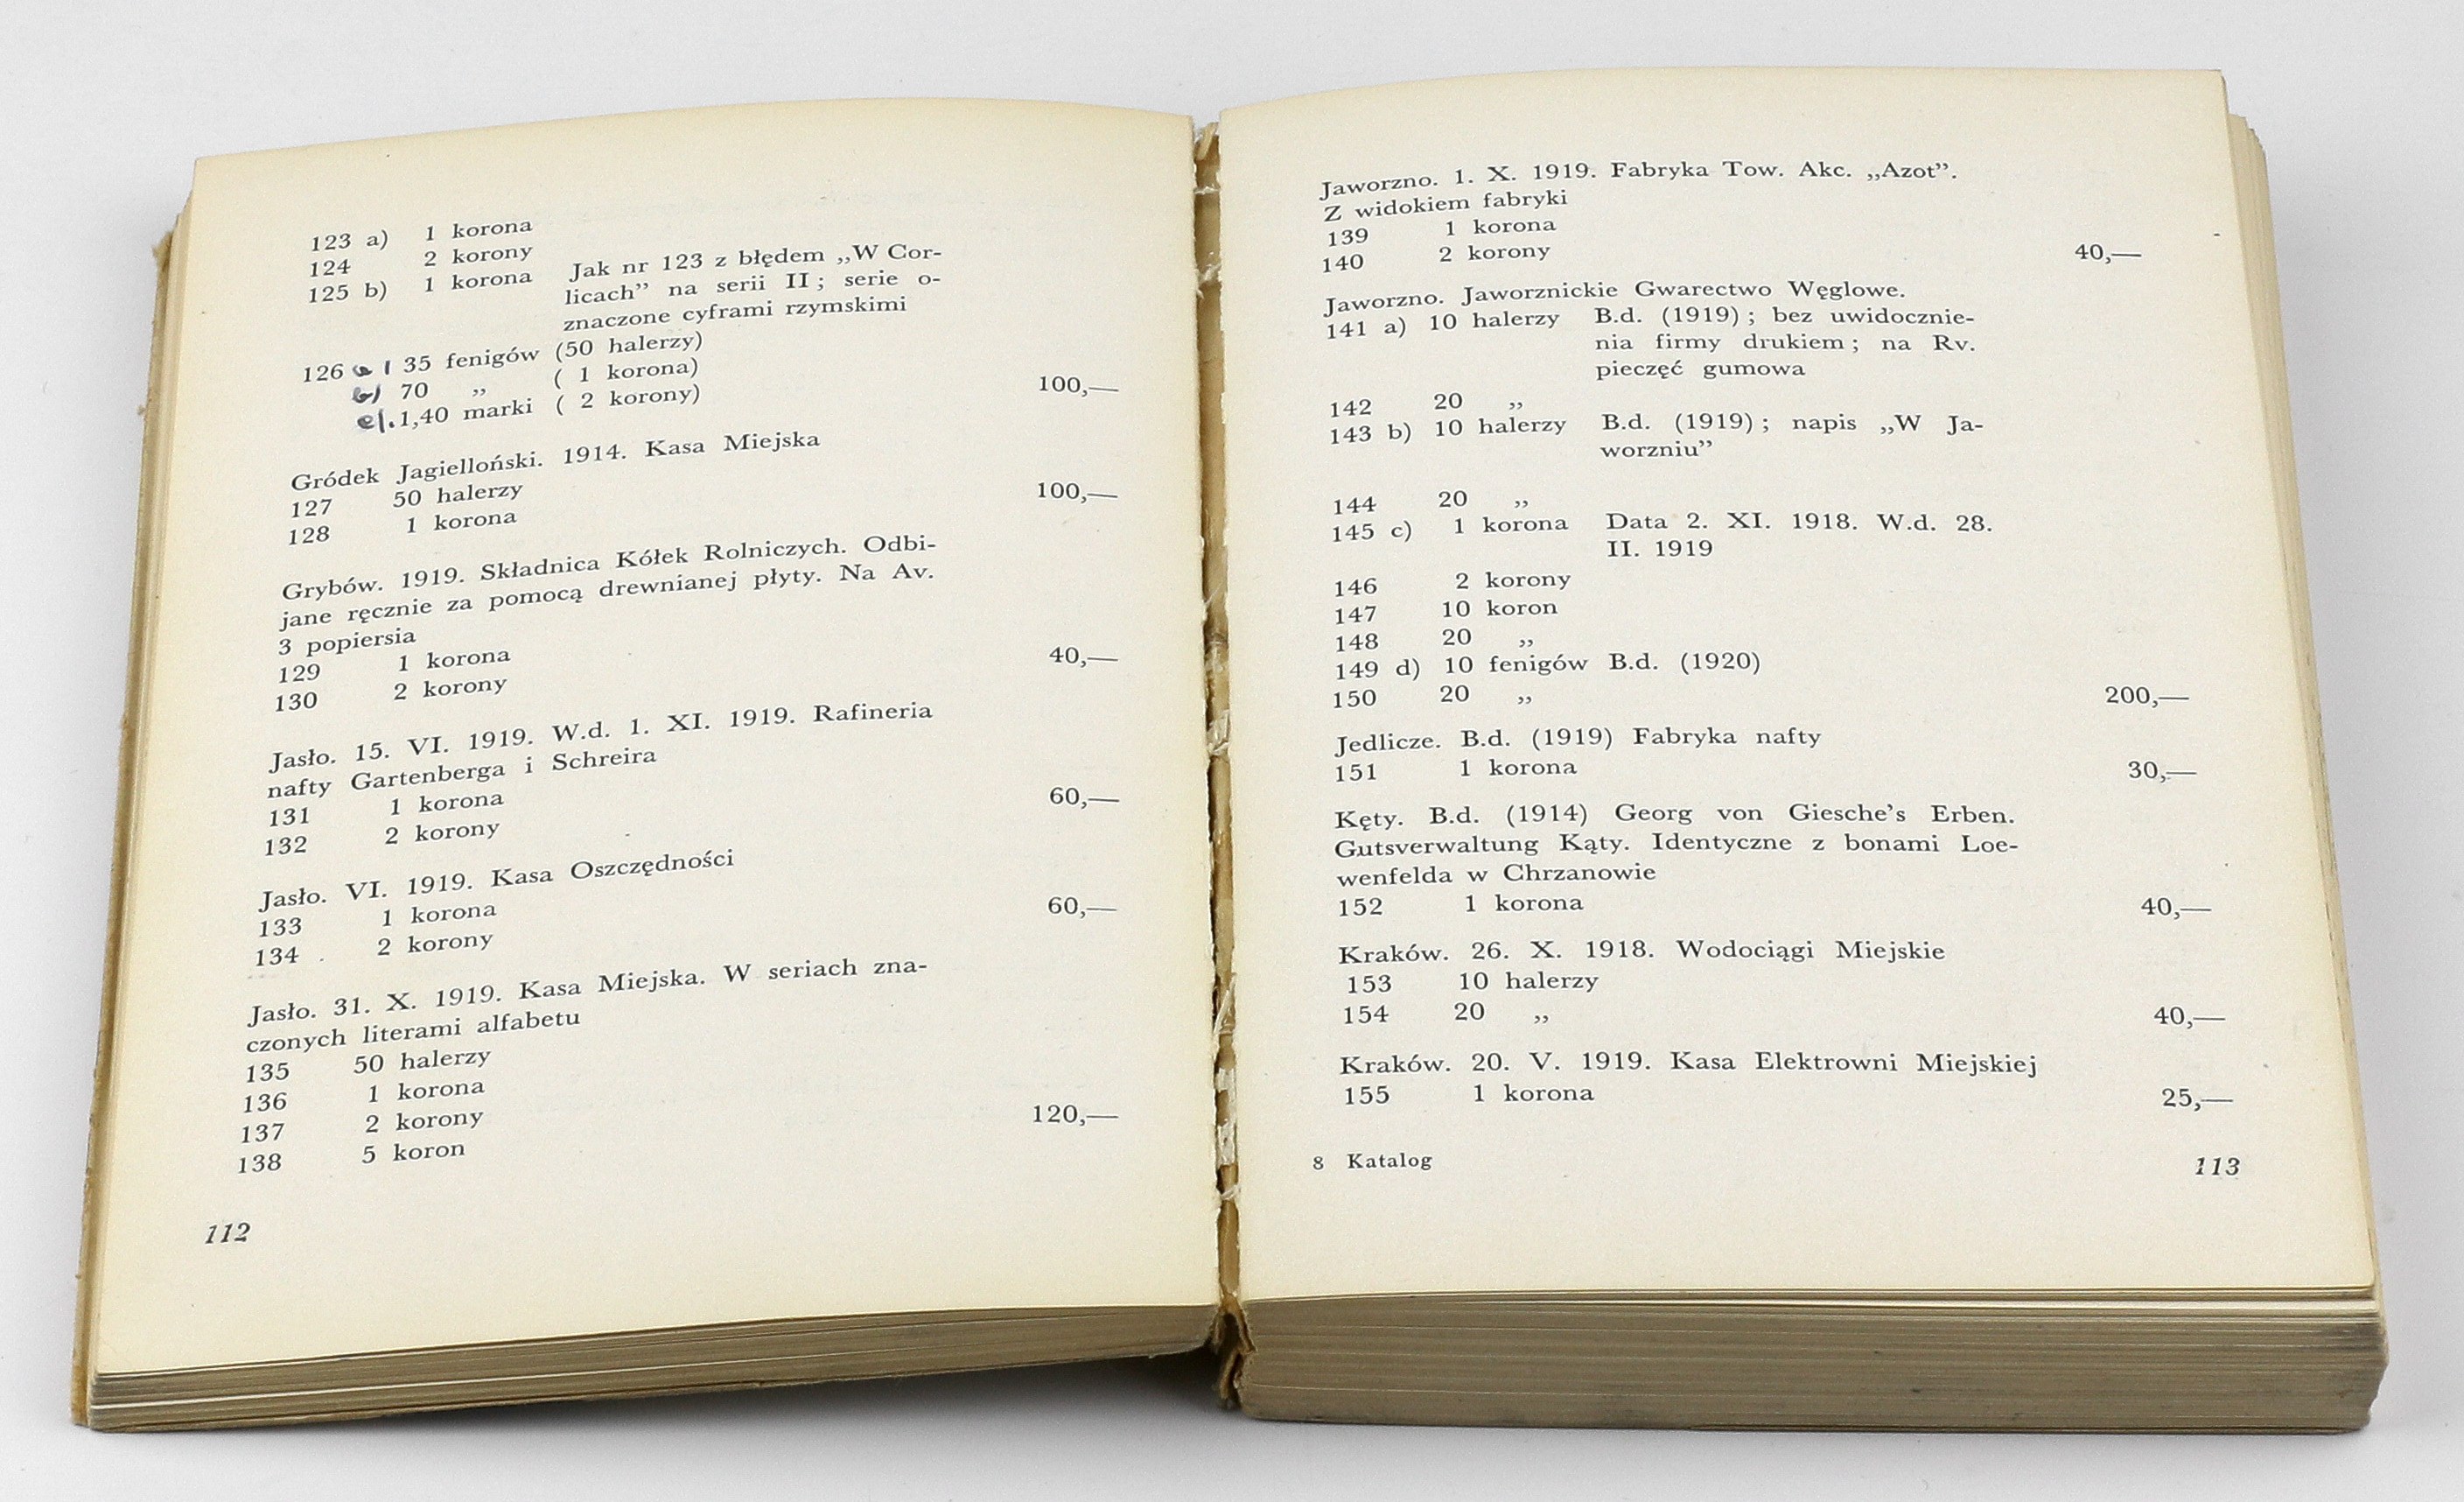 123 a) 1 korona
124 2 korony
125 b) 1 korona Jak nr 123 z błędem „W Cor-
licach” na serii II; serie o-
znaczone cyframi rzymskimi
126 a) 35 fenigów (50 halerzy)
b) 70 „ ( 1 korona)
c). 1,40 marki ( 2 korony) 100,—
Gródek Jagielloński. 1914. Kasa Miejska
127 50 halerzy
128 1 korona 100,—
Grybów. 1919. Składnica Kółek Rolniczych. Odbi-
jane ręcznie za pomocą drewnianej płyty. Na Av.
3 popiersia
129 1 korona
130 2 korony 40,—
Jasło. 15. VI. 1919. W.d. 1. XI. 1919. Rafineria
nafty Gartenberga i Schreira
131 1 korona
132 2 korony 60,—
Jasło. VI. 1919. Kasa Oszczędności
133 1 korona
134 2 korony 60,—
Jasło. 31. X. 1919. Kasa Miejska. W seriach zna-
czonych literami alfabetu
135 50 halerzy
136 1 korona
137 2 korony
138 5 koron 120,—
112
Jaworzno. 1. X. 1919. Fabryka Tow. Akc. „Azot”.
Z widokiem fabryki
139 1 korona
140 2 korony 40,—
Jaworzno. Jaworznickie Gwarectwo Węglowe.
141 a) 10 halerzy B.d. (1919); bez uwidocznie-
nia firmy drukiem; na Rv.
pieczęć gumowa
142 20 „
143 b) 10 halerzy B.d. (1919); napis „W Ja-
worzniu”
144 20 „
145 c) 1 korona Data 2. XI. 1918. W.d. 28.
II. 1919
146 2 korony
147 10 koron
148 20 „
149 d) 10 fenigów B.d. (1920)
150 20 „ 200,—
Jedlicze. B.d. (1919) Fabryka nafty
151 1 korona 30,—
Kęty. B.d. (1914) Georg von Giesche’s Erben.
Gutsverwaltung Kąty. Identyczne z bonami Loe-
wenfelda w Chrzanowie
152 1 korona 40,—
Kraków. 26. X. 1918. Wodociągi Miejskie
153 10 halerzy
154 20 „ 40,—
Kraków. 20. V. 1919. Kasa Elektrowni Miejskiej
155 1 korona 25,—
8 Katalog 113